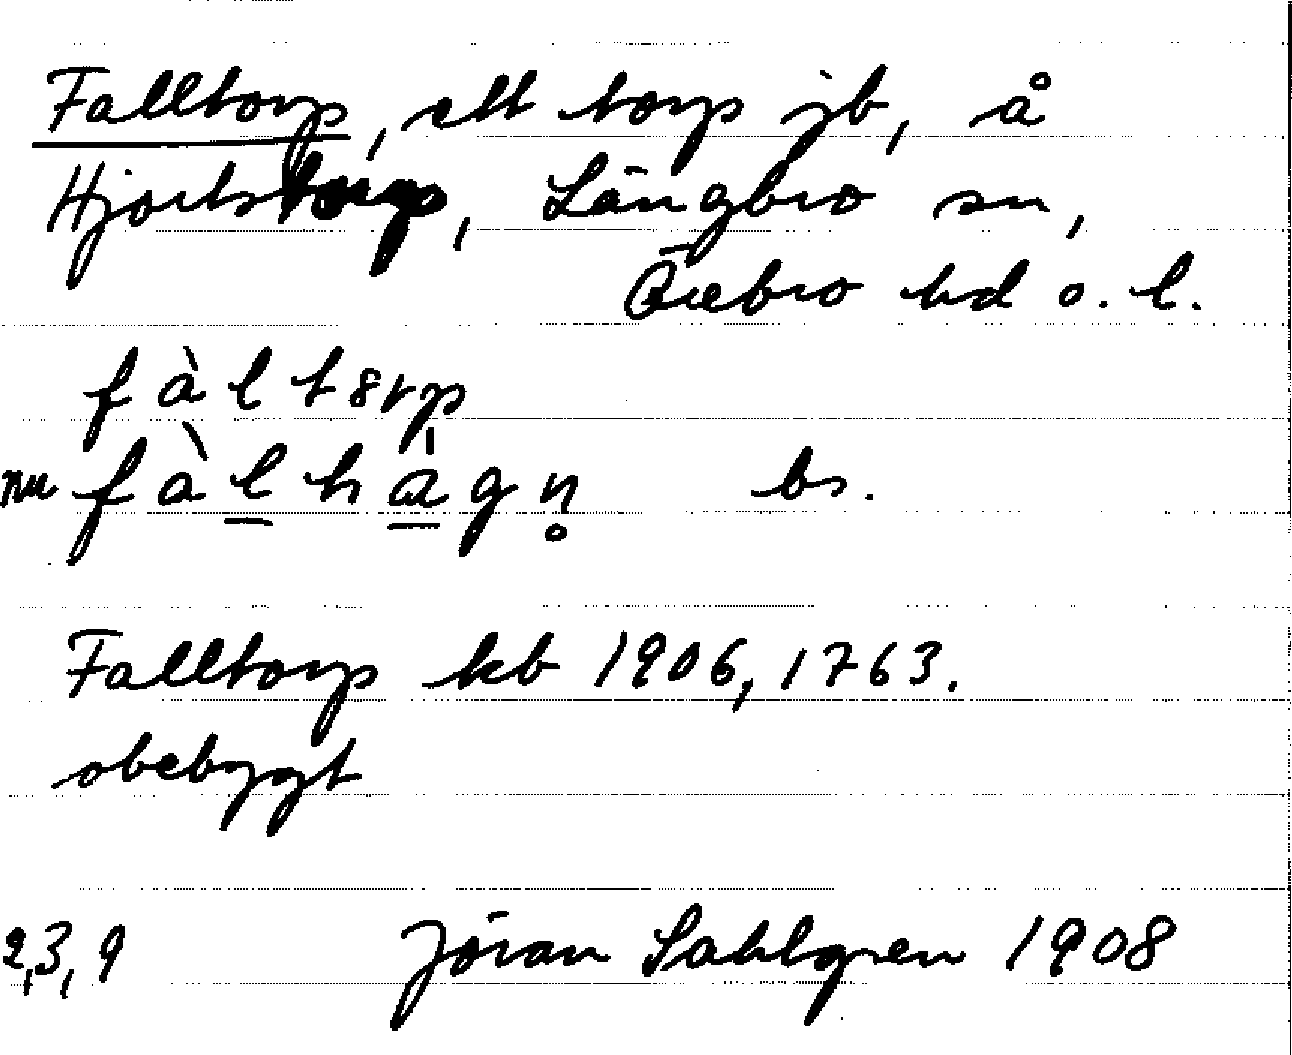 Falltorp, ett torp jb, å
Hjortstorp, Längbro sn,
Örebro hd o. l.
fàltorp
nu fàlhagn̥ bs.
Falltorp kb 1906, 1763.
obebygt
2,3,9 Jöran Sahlgren 1908